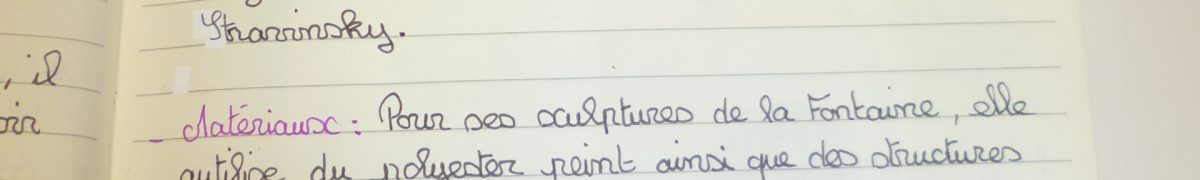 Stravinsky.
, il
- Matériaux : Pour ses sculptures de la Fontaine, elle
utilise du polyester peint ainsi que des structures